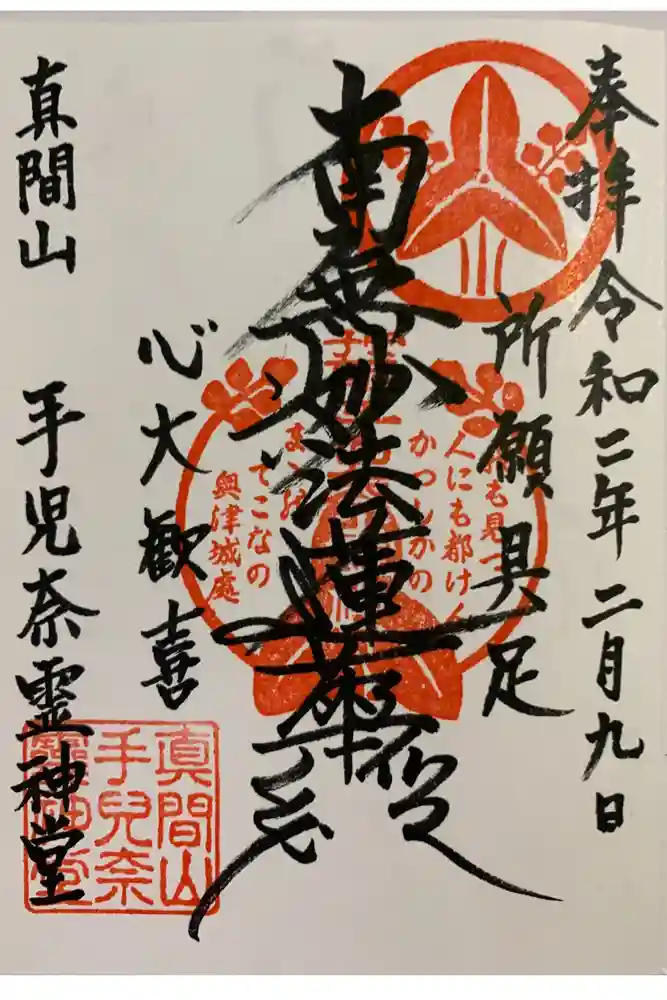 奉拝 令和二年二月九日
所願具足
南無妙法蓮華経
心大歓喜
真間山 手児奈霊神堂
人にも都けん
かつしかの
てこなの
奥津城處
真間山
手兒奈
靈神堂